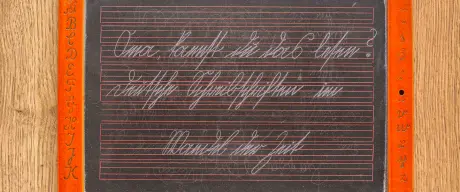 Oma, kannst du das lesen?
deutsche Schreibschriften im
Wandel der Zeit